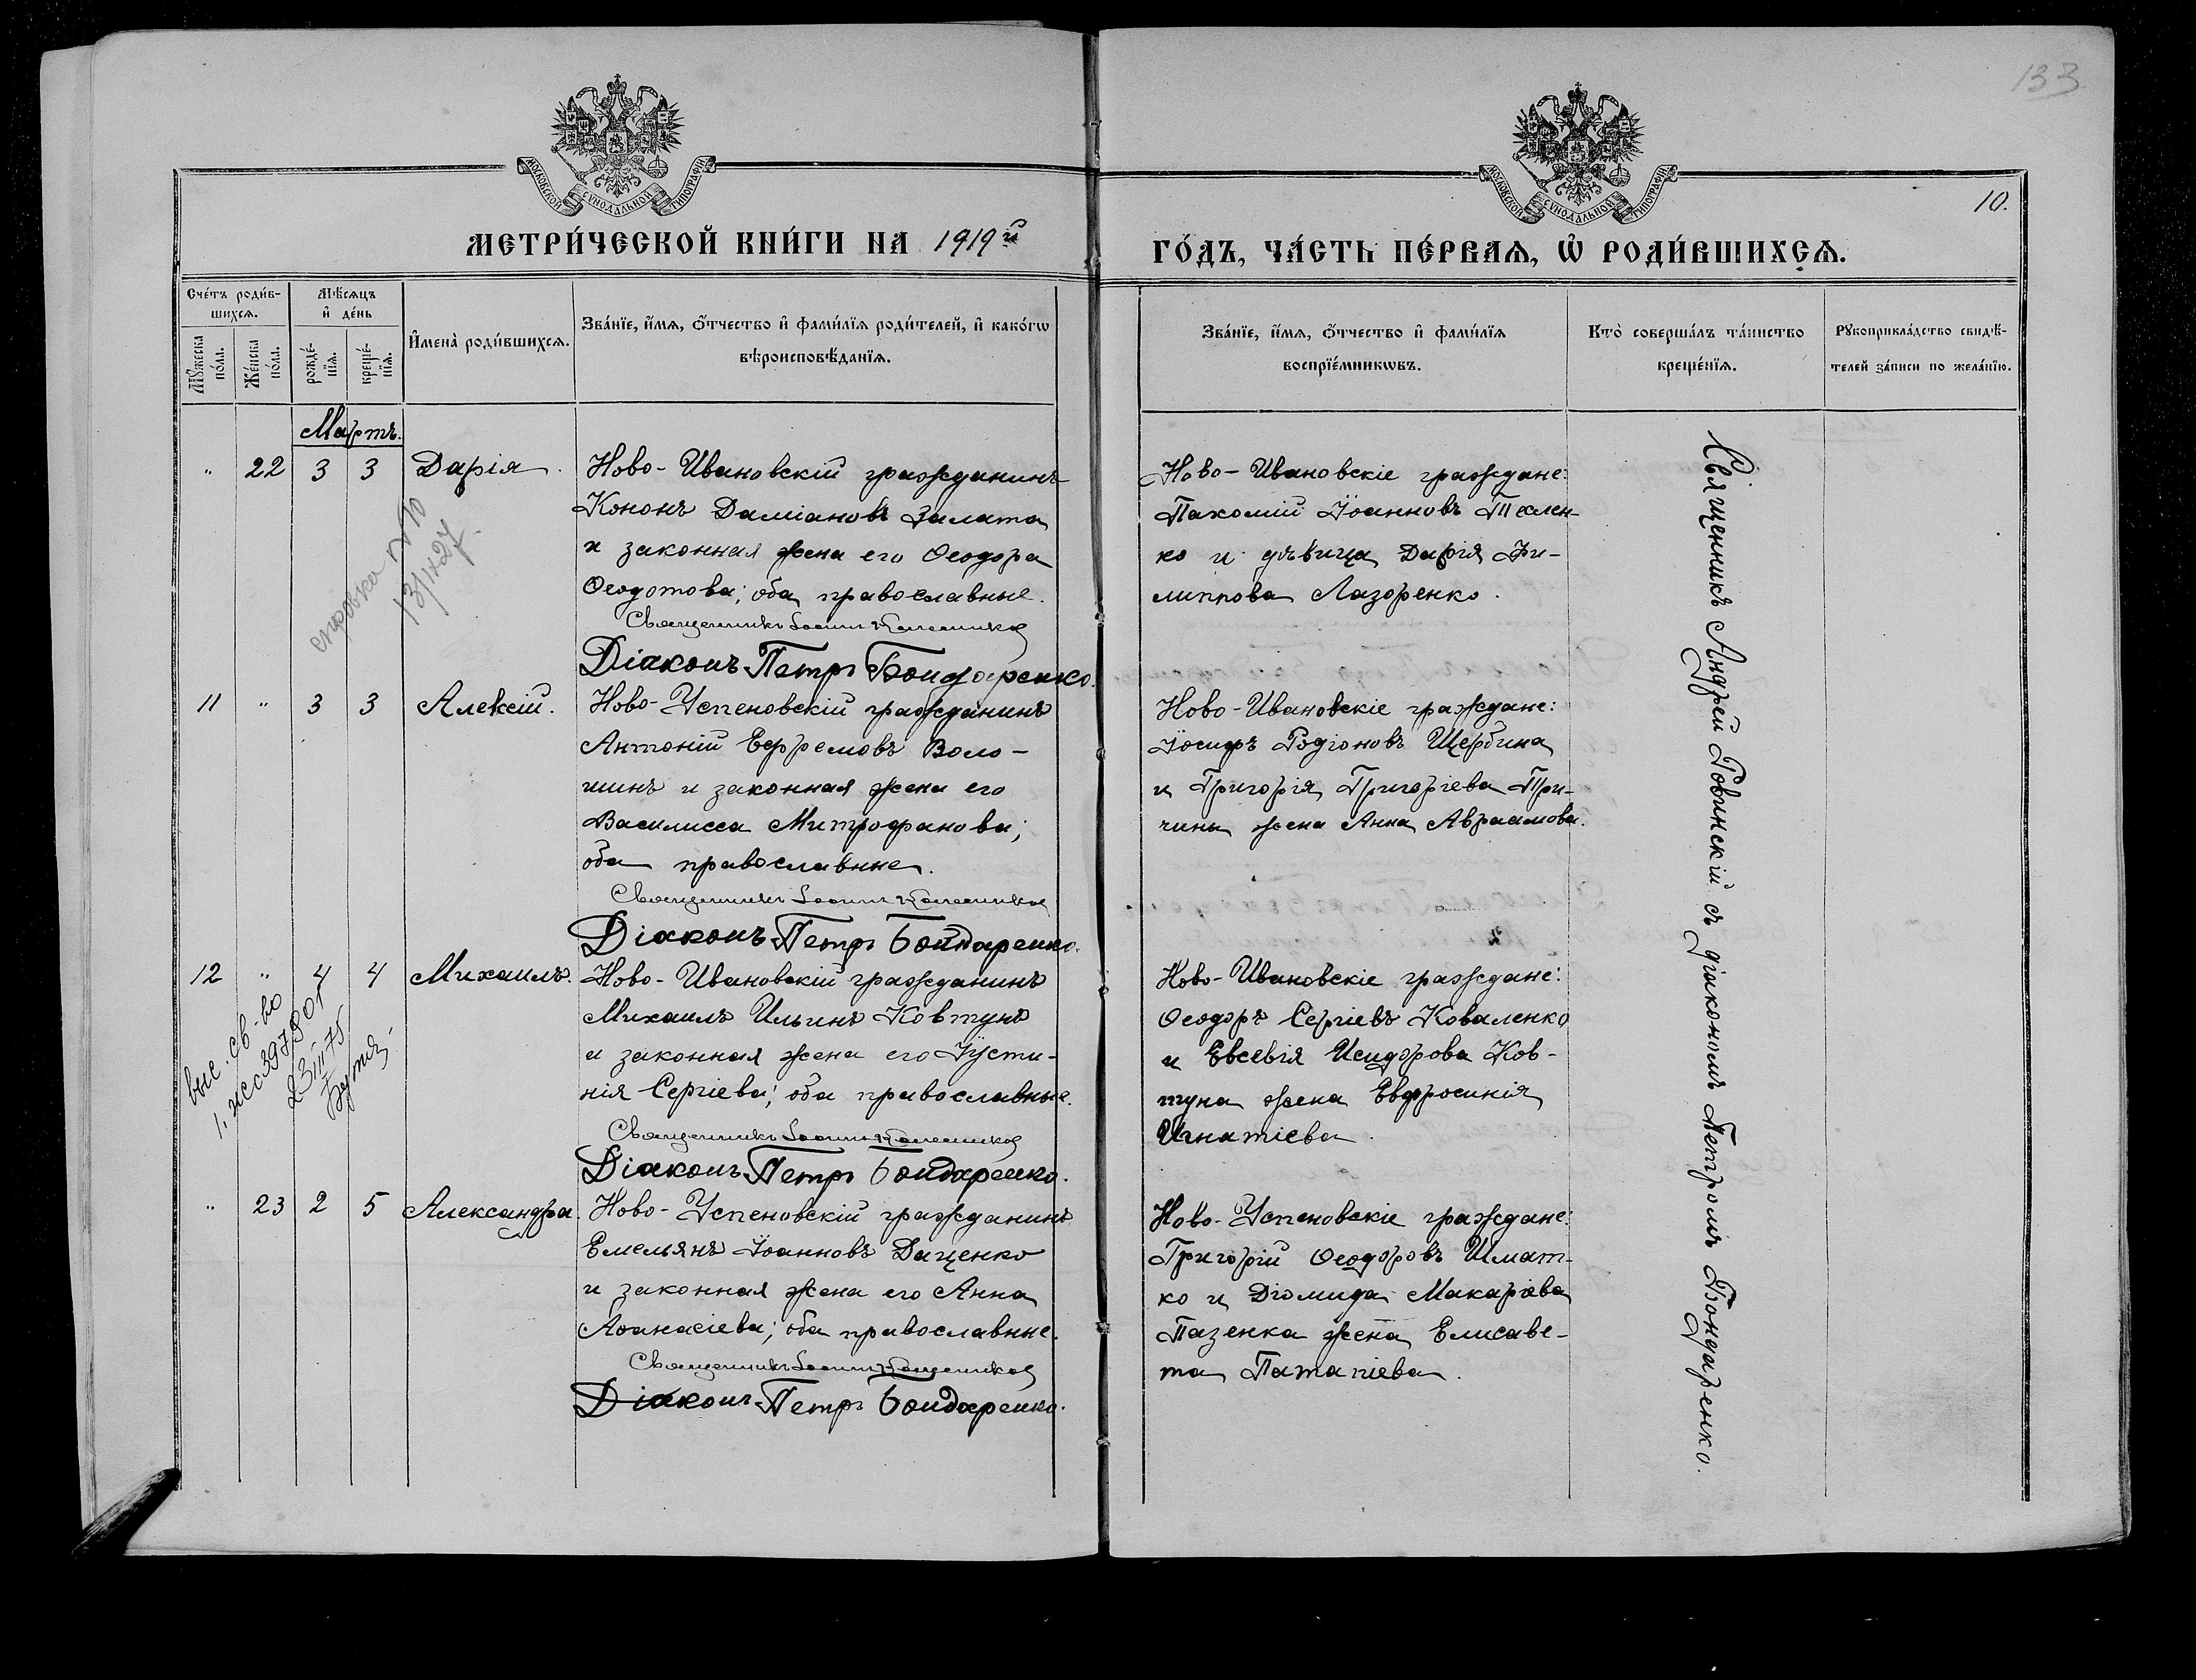 133
МОСКОВСКОЙ СѴНОДАЛЬНОЙ ТИПОГРАФІИ
МОСКОВСКОЙ СѴНОДАЛЬНОЙ ТИПОГРАФІИ
10.
МЕТРИ́ЧЕСКОЙ КНИ́ГИ НА 1919й
ГО́ДЪ, ЧА́СТЬ ПЕ́РВАѦ, Ѡ҆ РОДИ́ВШИХСѦ.
Сче́тъ роди́в-
шихсѧ.
Мѣ́сѧцъ
и҆ де́нь
Мꙋ́жеска
по́ла.
Же́нска
по́ла.
рожде́-
нїѧ.
креще́-
нїѧ.
И҆мена̀ роди́вшихсѧ.
Зва́нїе, и҆́мѧ, ѻ҆́тчество и҆ фами́лїѧ роди́телей, и҆ како́гѡ
вѣроисповѣ́данїѧ.
Зва́нїе, и҆́мѧ, ѻ҆́тчество и҆ фами́лїѧ
воспрїе́мникѡвъ.
Кто̀ соверша́лъ та́инство
креще́нїѧ.
Рꙋкоприкла́дство свидѣ́-
телей за́писи по жела́нїю.
Мартъ.
" 22 3 3 Дарія.
Ново-Ивановскій гражданинъ
Кононъ Даміановъ Залата
и законная жена его Ѳеодора
Ѳеодотова; оба православные.
Священникъ Іоаннъ
Діаконъ Петръ Бондаренко.
справка № 10
Ново-Ивановскіе граждане:
Пахомій Іоанновъ Теслен-
ко и дѣвица Дарія Фи-
липпова Лазоренко.
11 " 3 3 Алексій.
Ново-Успеновскій гражданинъ
Антоній Ефремовъ Воло-
шинъ и законная жена его
Василисса Митрофанова;
оба православные.
Священникъ Іоаннъ
Діаконъ Петръ Бондаренко.
Ново-Ивановскіе граждане:
Іосифъ Родіоновъ Щербина
и Григорія Григоріева При-
чины жена Анна Авраамова.
12 " 4 4 Михаилъ.
Ново-Ивановскій гражданинъ
Михаилъ Ильинъ Ковтунъ
и законная жена его Іусти-
нія Сергіева; оба православные.
Священникъ Іоаннъ
Діаконъ Петръ Бондаренко.
выс. св-во
23/III 75
Ново-Ивановскіе граждане:
Ѳеодоръ Сергіевъ Коваленко
и Евсевія Исидорова Ков-
туна жена Евфросинія
Игнатіева.
" 23 2 5 Александра.
Ново-Успеновскій гражданинъ
Емельянъ Іоанновъ Даценко
и законная жена его Анна
Аѳанасіева; оба православные.
Священникъ Іоаннъ
Діаконъ Петръ Бондаренко.
Ново-Успеновскіе граждане:
Григорій Ѳеодоровъ Шмат-
ко и Діомида Макаріева
Пазенка жена Елисаве-
та Патапіева.
Священникъ Андрей Ровинскій съ діакономъ Петромъ Бондаренко.